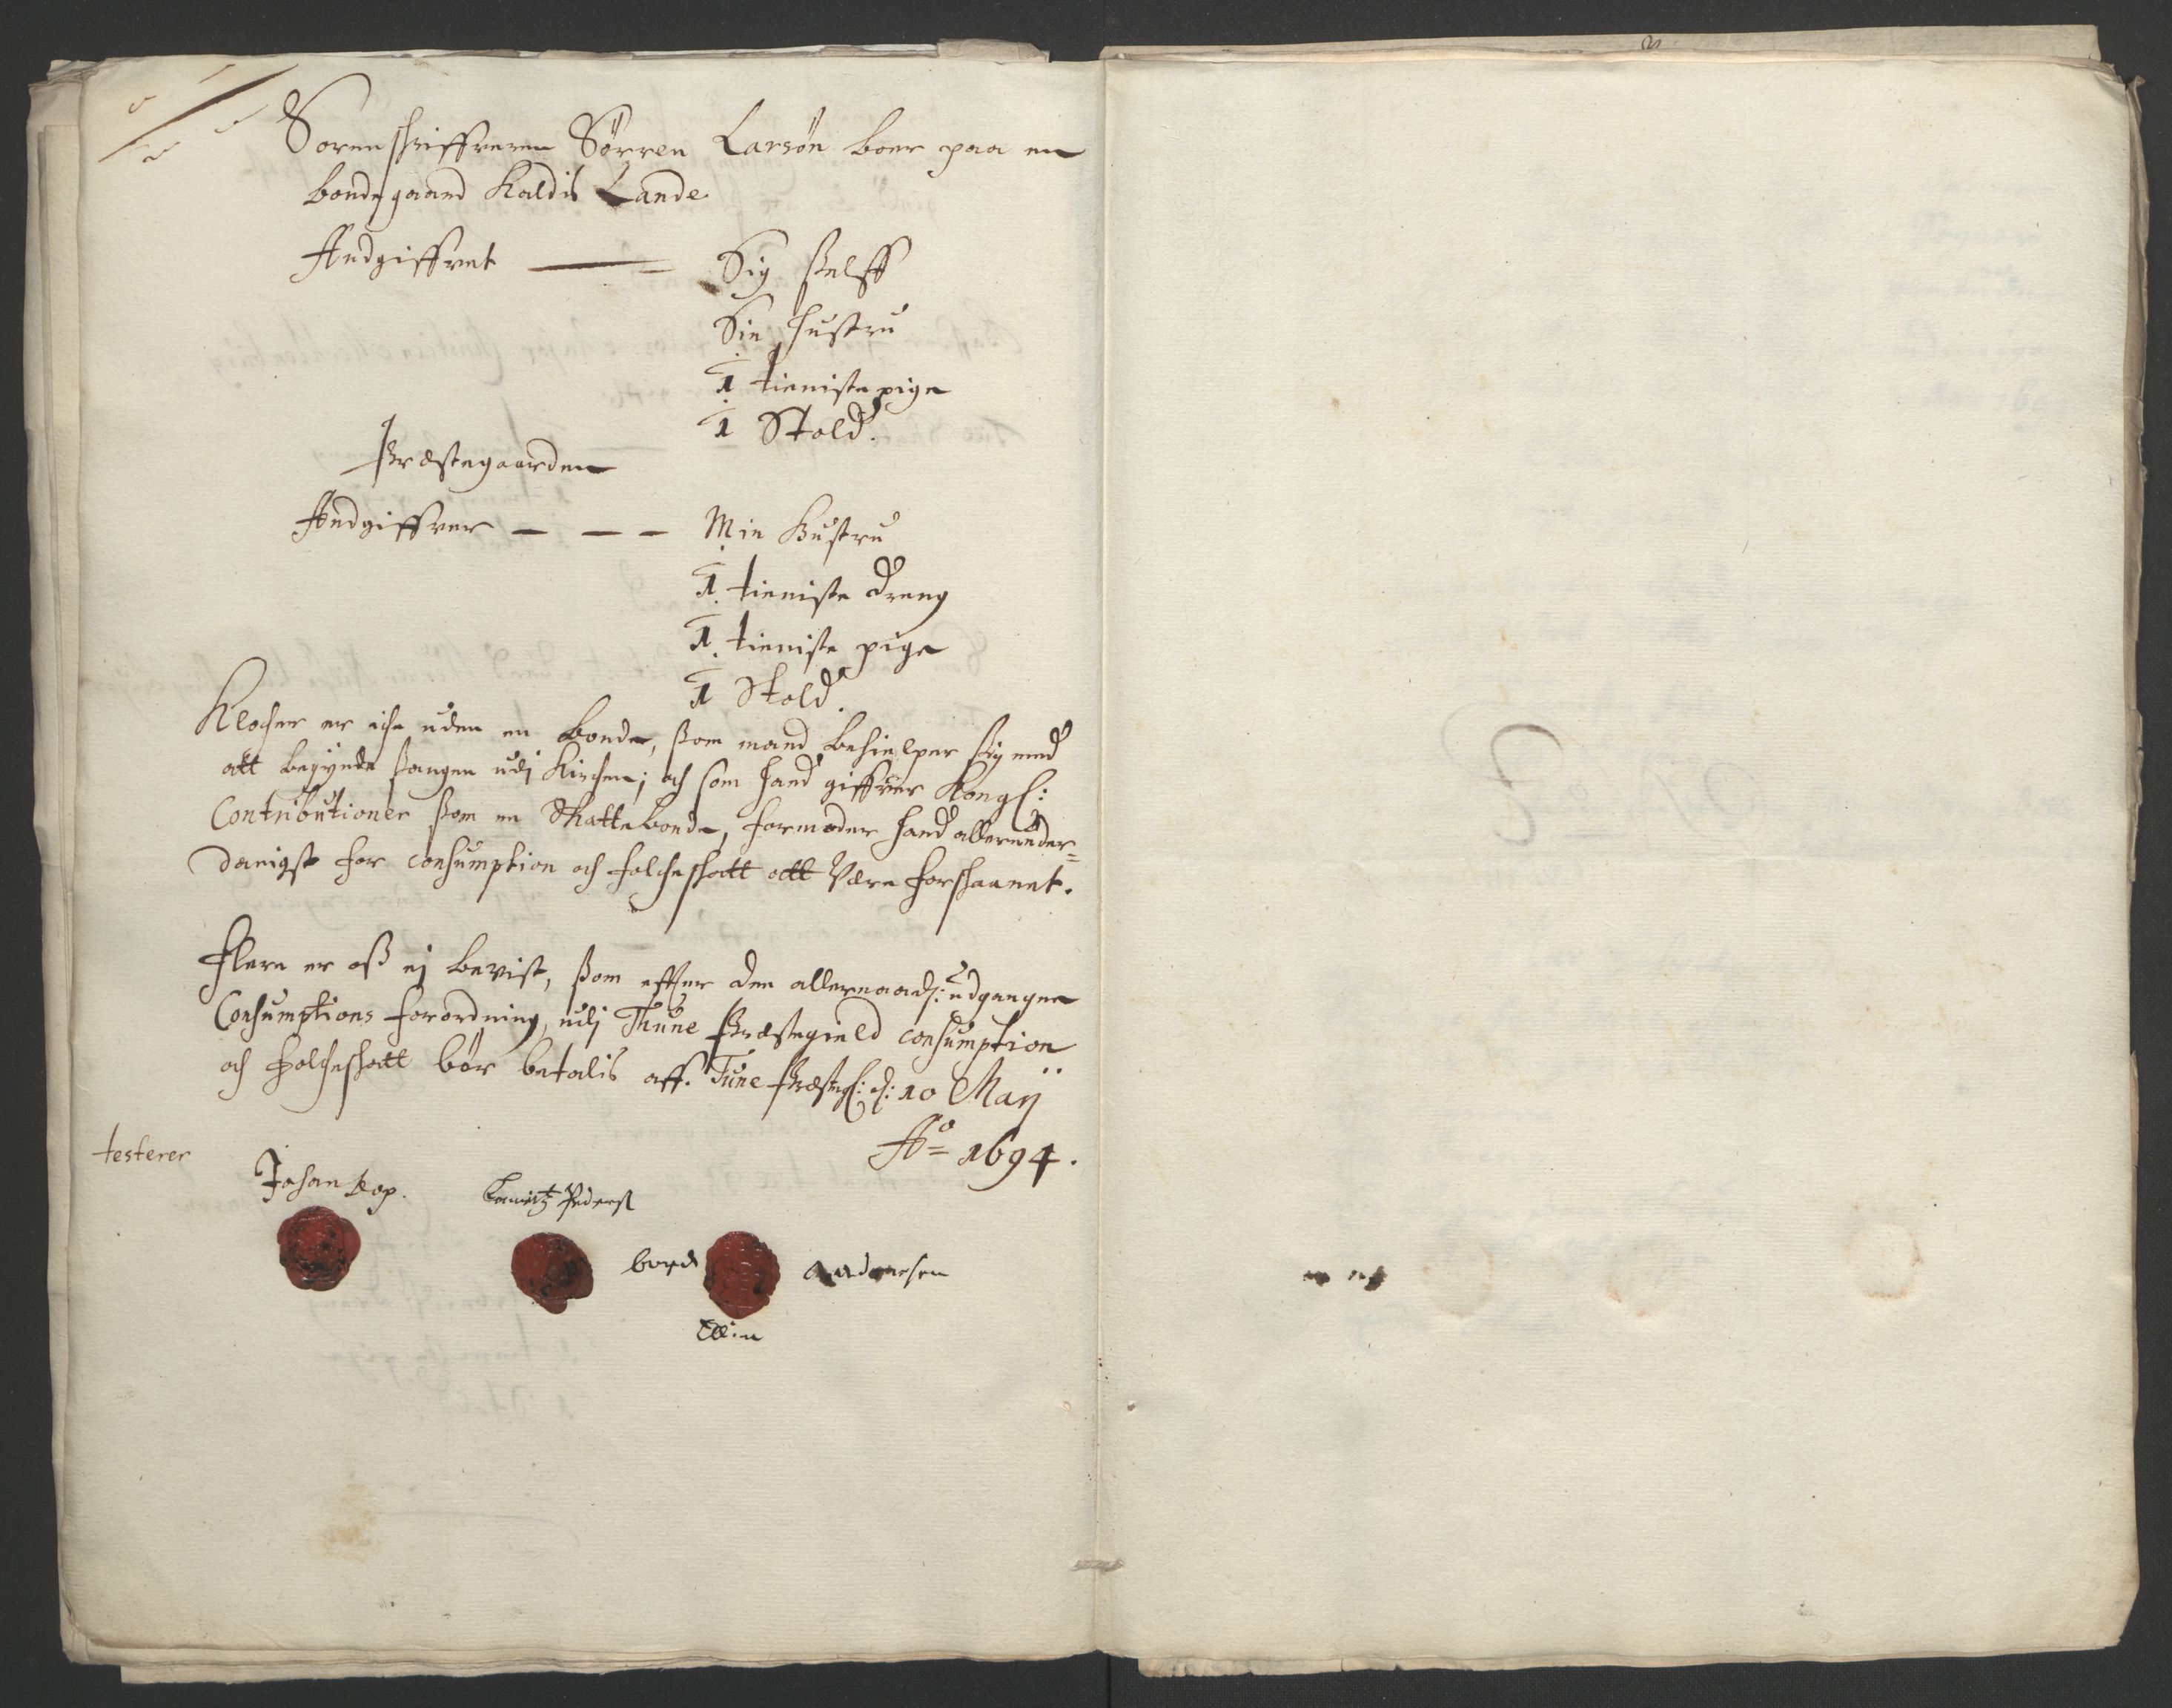 Sorenschriffveren Sörren Larsön boer paa en
bondegaard Kaldis Lande
Andgiffvet — Sig Sielff
Sin hustru
1 tienistepige
1 Stold.
Præstegaarden
Andgiffver — — — Min Hustru
1. tieniste dreng
1. tieniste pige
1 Stold.
Klocher er iche uden en bonde, som mand behielper sig med
att begynde sangen udj Kirchen; och som hand giffver Kongl:
Contributioner som en Skattebonde, formoder hand allerunder=
danigst for consumption och folcheschatt att være forschaanet.
Flere er oss ej bevist, som effter den allernaads: udgangne
Consumptions forordning, udj Thune Præstegield consumption
och folcheschatt bör betalis aff. Tune Præstg: d: 10 Maij
Ao = 1694.
testerer
Johan Kop. Lauritz Peders
bord Andersen
Ellin